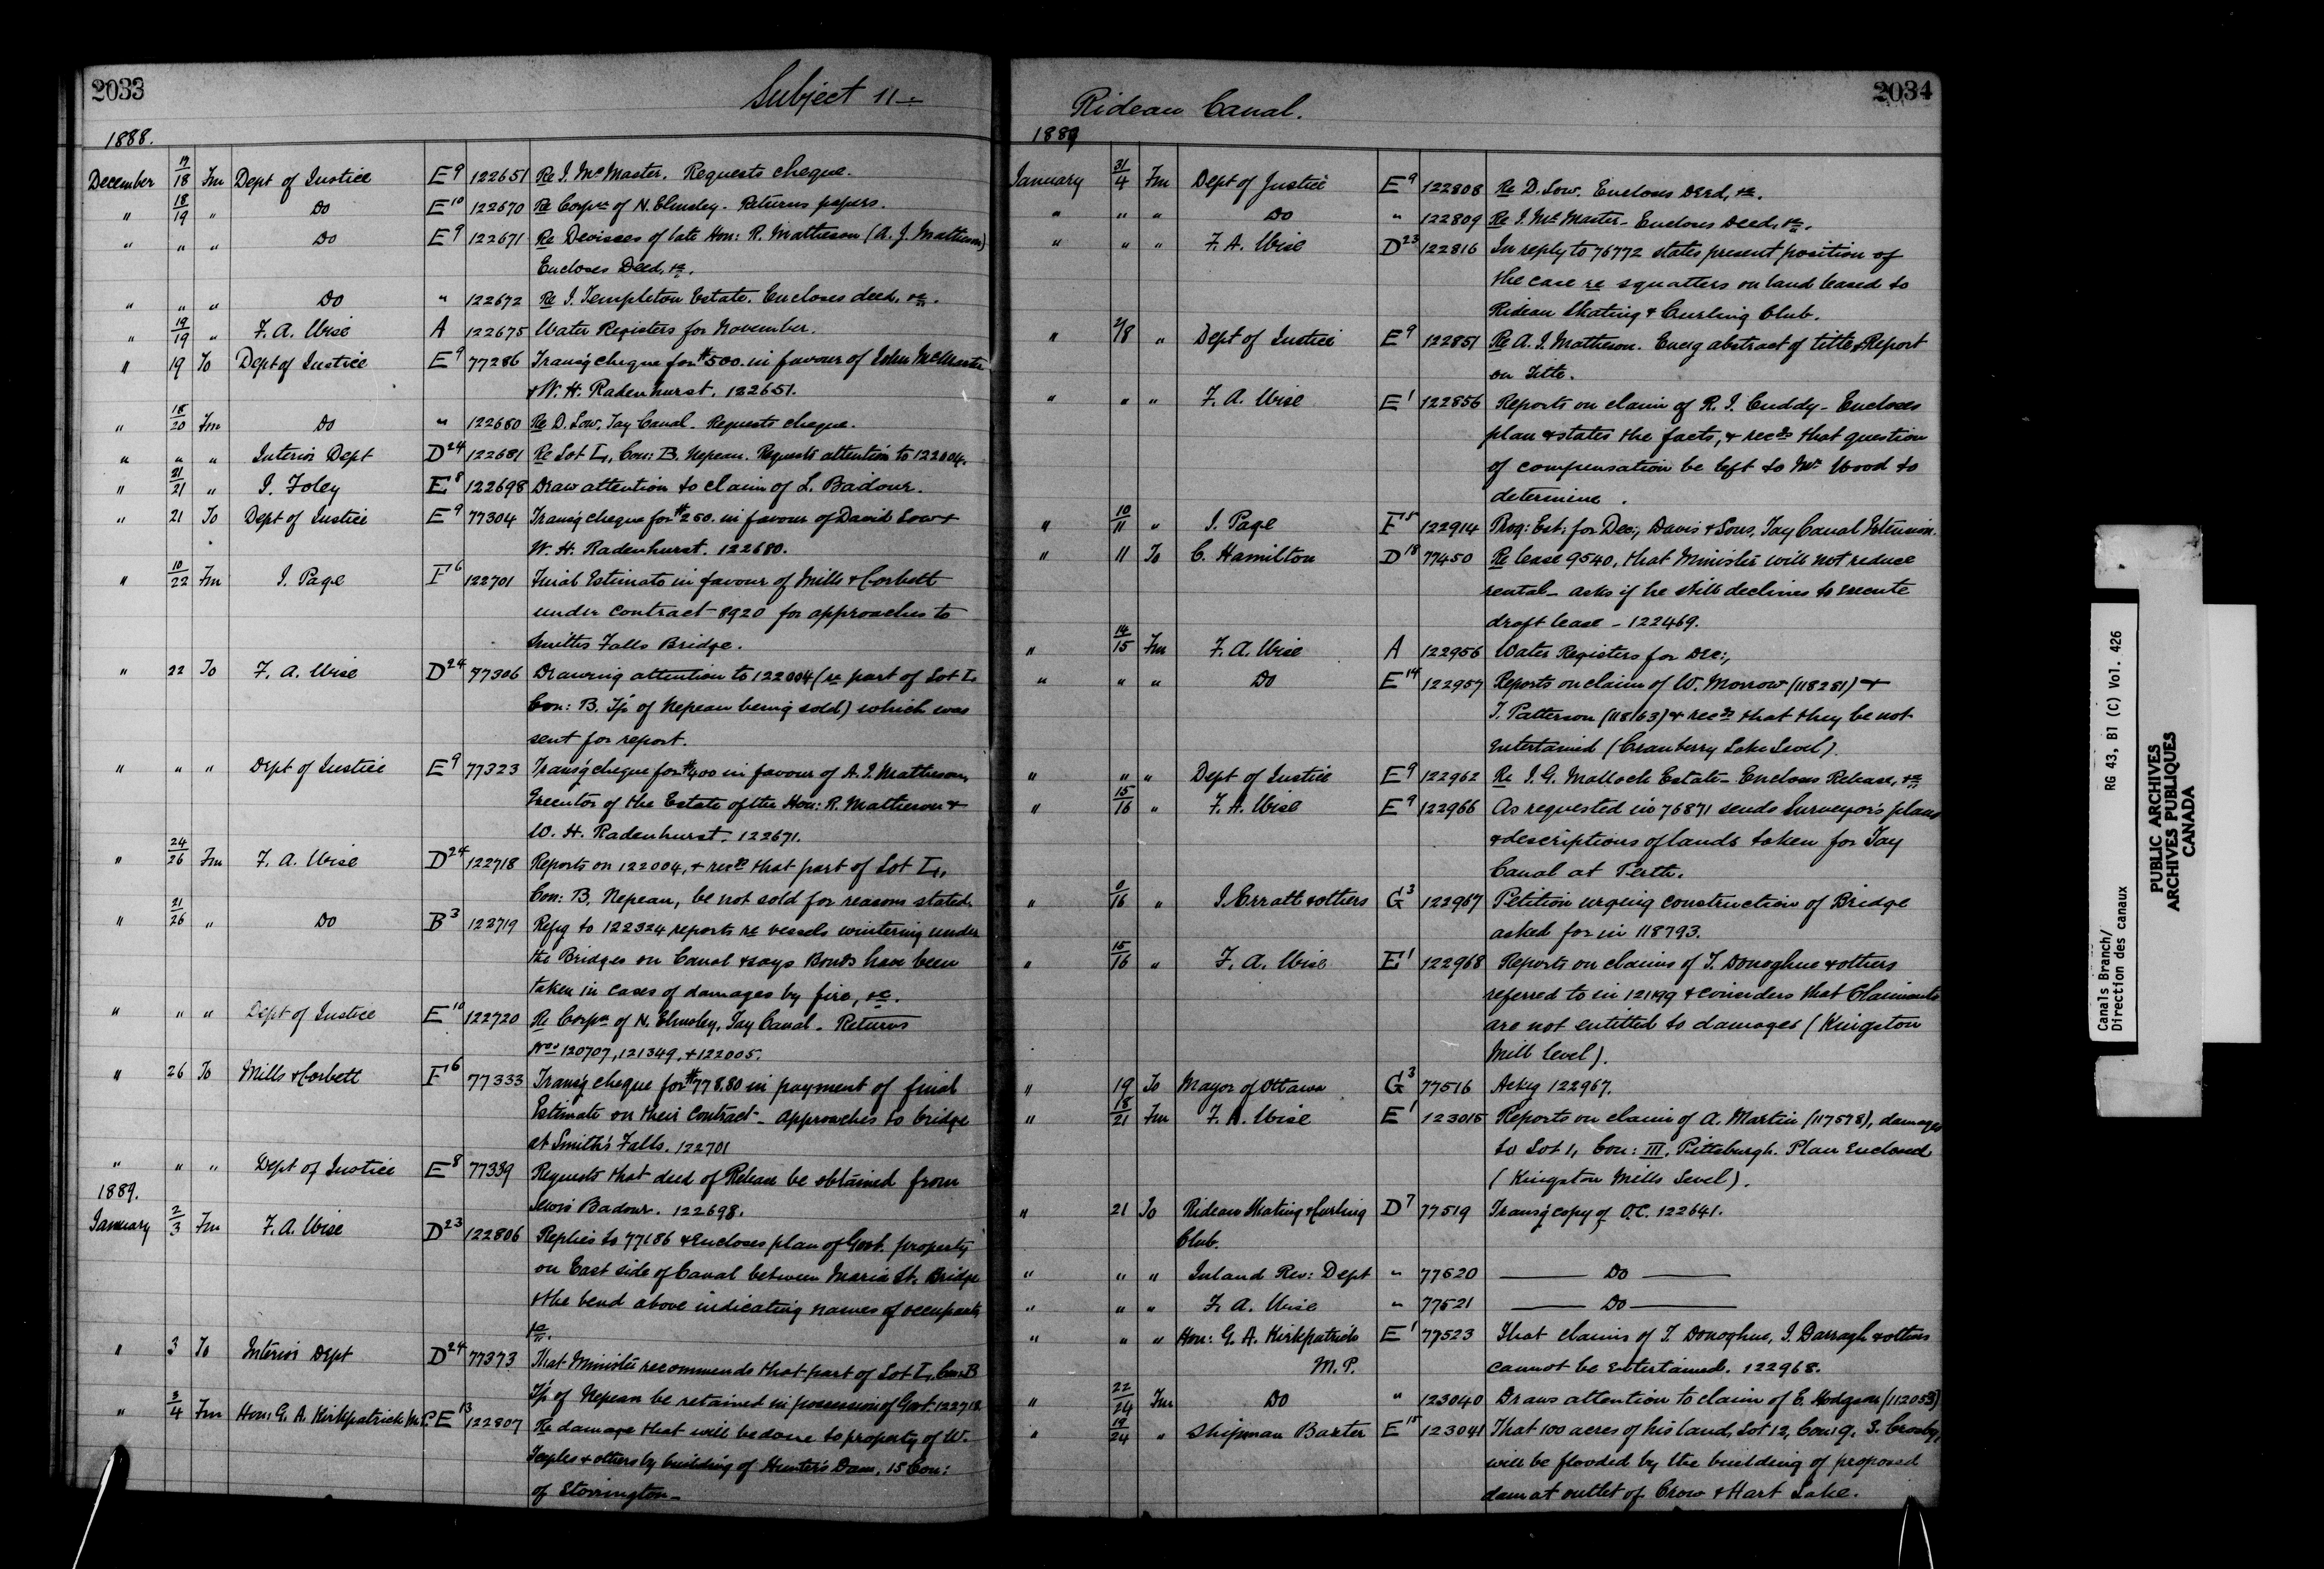 2033
Subject 11
1888.
December 17/18 Fm Dept of Justice E9 122651 Re J. McMaster. Requests cheque.
" 18/19 " Do E10 122670 Re Corpn of N. Elmsley. Returns papers.
" " " Do E9 122671 Re Devisees of late Hon: R. Matheson (A. J. Matheson)
Encloses Deed, &c.
" " " Do " 122672 Re J. Templeton Estate. Encloses deed, &c.
" 19/19 " F. A. Wise A 122675 Water Registers for November.
" 19 To Dept of Justice E9 77286 Transg cheque for $500. in favour of John McMaster
& W. H. Radenhurst. 122651.
" 18/20 Fm Do " 122680 Re D. Low, Tay Canal. Requests cheque.
" " " Interior Dept D24 122681 Re Lot L, Con: B. Nepean. Requests attention to 122004.
" 21/21 " J. Foley E8 122698 Draw attention to claim of L. Badour.
" 21 To Dept of Justice E9 77304 Transg cheque for $250. in favour of David Low &
W. H. Radenhurst. 122680.
" 10/22 Fm J. Page F6 122701 Final Estimate in favour of Mills & Corbett
under contract 8920 for approaches to
Smiths Falls Bridge.
" 22 To F. A. Wise D24 77306 Drawing attention to 122004 (re part of Lot L.
Con: B. Tp of Nepean being sold) which was
sent for report.
" " " Dept of Justice E9 77323 Transg cheque for $400 in favour of A. J. Matheson,
Executor of the Estate of the Hon: R. Matheson &
W. H. Radenhurst. 122671.
" 24/26 Fm F. A. Wise D24 122718 Reports on 122004, & recds that part of Lot L,
Con: B, Nepean, be not sold for reasons stated.
" 21/26 " Do B3 122719 Refg to 122324 reports re vessels wintering under
the Bridges on Canal & says Bonds have been
taken in cases of damages by fire, &c.
" " " Dept of Justice E10 122720 Re Corpn of N. Elmsley, Tay Canal. Returns
Nos 120707, 121349, & 122005.
" 26 To Mills & Corbett F6 77333 Transg cheque for $778.80 in payment of final
Estimate on their contract - Approaches to bridge
at Smith's Falls. 122701
" " " Dept of Justice E8 77339 Requests that deed of Release be obtained from
Lewis Badour. 122698.
1889.
January 2/3 Fm F. A. Wise D23 122806 Replies to 77186 & Encloses plan of Govt. property
on East side of Canal between Maria St. Bridge
& the bend above indicating names of occupants
&c.
" 3 To Interior Dept D24 77373 That Minister recommends that part of Lot L, Con: B
Tp of Nepean be retained in possession of Govt. 122718
" 3/4 Fm Hon: G. A. Kirkpatrick M.P. E13 122807 Re damage that will be done to property of W.
Teeples & others by building of Hunter's Dam, 15 Con:
of Storrington -
2034
Rideau Canal.
1889
January 31/4 Fm Dept of Justice E9 122808 Re D. Low. Encloses Deed, &c.
" " " Do " 122809 Re J. McMaster - Encloses Deed, &c.
" " " F. A. Wise D23 122816 In reply to 76772 states present position of
the case re squatters on land leased to
Rideau Skating & Curling Club.
" 2/8 " Dept of Justice E9 122851 Re A. J. Matheson. Encg abstract of title & Report
on Title.
" " " F. A. Wise E1 122856 Reports on claim of R. J. Cuddy - Encloses
plan & states the facts, & recds that question
of compensation be left to Mr Wood to
determine.
" 10/11 " J. Page F5 122914 Prog: Est: for Dec:, Davis & Sons, Tay Canal Extension.
" 11 To C. Hamilton D18 77450 Re lease 9540, that Minister will not reduce
rental - asks if he still declines to execute
draft lease - 122469.
" 14/15 Fm F. A. Wise A 122956 Water Registers for Dec:,
" " " Do E14 122957 Reports on claim of W. Morrow (118281) &
T. Patterson (118163) & recds that they be not
entertained (Cranberry Lake Level)
" " " Dept of Justice E9 122962 Re J. G. Malloch Estate - Encloses Release, &c
" 15/16 " F. A. Wise E9 122966 As requested in 76871 sends Surveyor's plans
& descriptions of lands taken for Tay
Canal at Perth.
" 0/16 " J. Erratt & others G3 122967 Petition urging construction of Bridge
asked for in 118793.
" 15/16 " F. A. Wise E1 122968 Reports on claims of T. Donoghue & others
referred to in 121199 & considers that Claimants
are not entitled to damages (Kingston
Mill level).
" 19 To Mayor of Ottawa G3 77516 Ackg 122967.
" 18/21 Fm F. A. Wise E1 123015 Reports on claim of A. Martin (117578), damages
to Lot 1, Con: III, Pittsburgh. Plan Enclosed
(Kingston Mills Level).
" 21 To Rideau Skating & Curling D7 77519 Transg copy of O.C. 122641.
Club.
" " " Inland Rev: Dept " 77520 Do
" " " F. A. Wise " 77521 Do
" " " Hon: G. A. Kirkpatrick E1 77523 That claims of T. Donoghue, J. Darragh & others
M.P. cannot be entertained. 122968.
" 22/24 Fm Do " 123040 Draws attention to claim of E. Hodgson (112053)
" 19/24 " Shipman Baxter E15 123041 That 100 acres of his land, Lot 12, Con: 9, S. Crosby,
will be flooded by the building of proposed
dam at outlet of Crow & Hart Lake.
Canals Branch/
Direction des canaux
RG 43, B1 (C) Vol. 426
PUBLIC ARCHIVES
ARCHIVES PUBLIQUES
CANADA